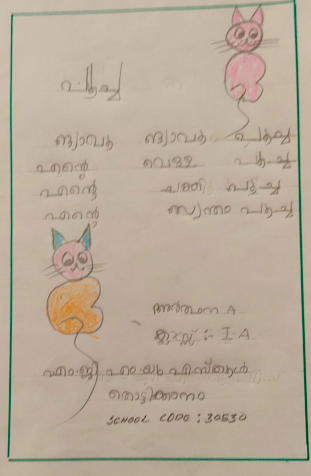 പൂച്ച
ങ്യാവൂ ങ്യാവൂ പൂച്ച
എന്റെ വെള്ള പൂച്ച
എന്റെ ചക്കി പൂച്ച
എന്റെ സ്വന്തം പൂച്ച
അർത്ഥന A
ക്ലാസ്സ് :- I A
എം.ജി.എം.യു.പി.സ്കൂൾ
തൊട്ടിക്കാനം
SCHOOL CODE : 30530